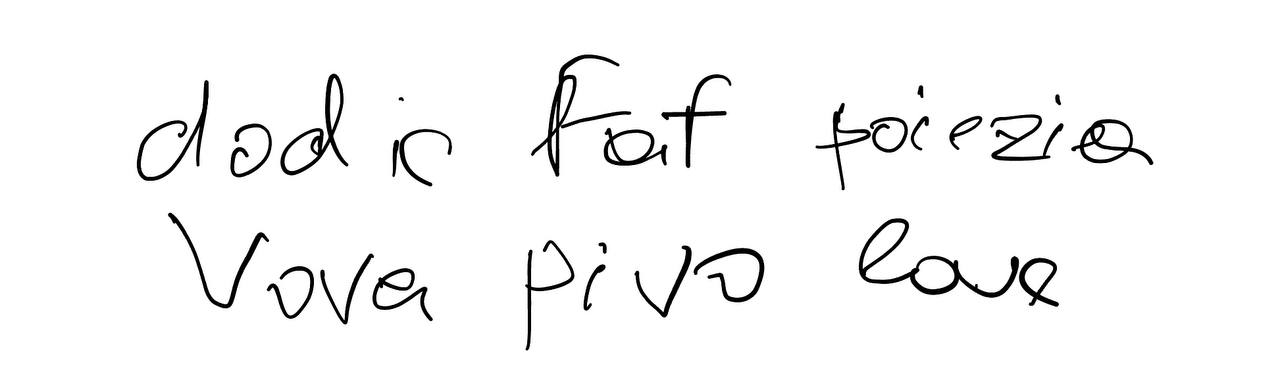 dodic Fat poiezia
Vova pivo love